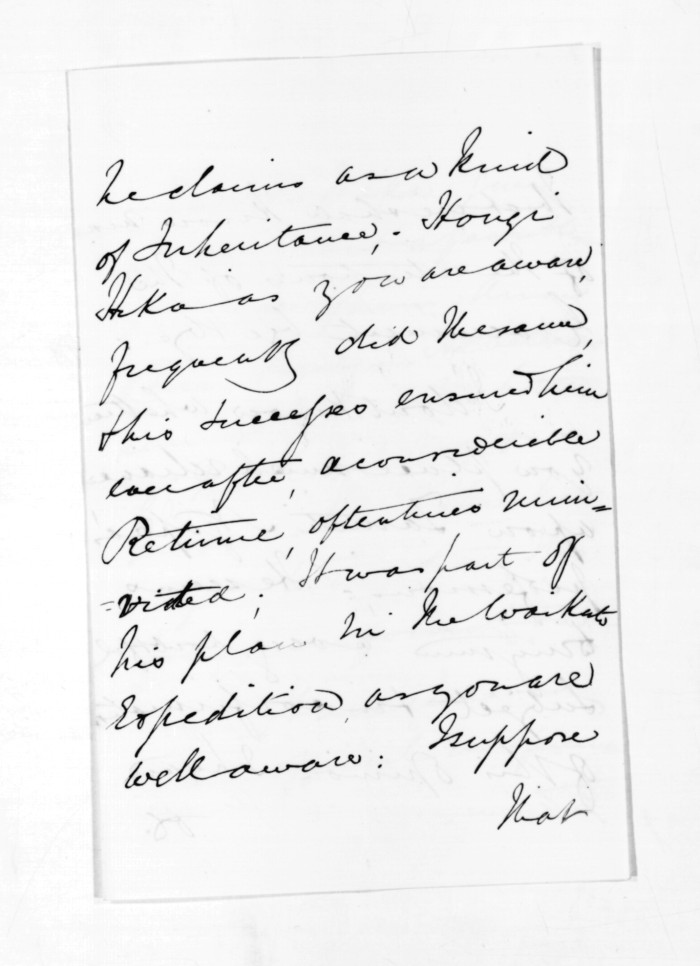 he claims as a kind
of Inheritance, - Hongi
Hika as you are aware,
frequently did the same,
this success ensured him
ever after, a considerable
Retinue, oftentimes unin=
=vited; It was part of
his plan in the Waikato
Expedition, as you are
well aware: I suppose
that